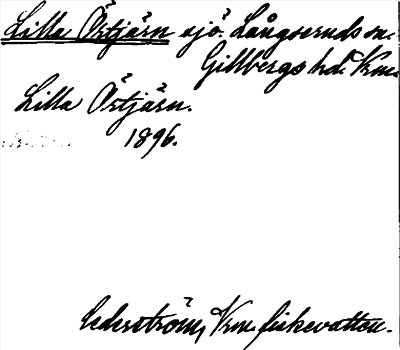 Lilla Örtjärn sjö. Långseruds sn.
Gillbergs hd. Vrm.
Lilla Örtjärn.
1896.
Cederström, Vrm. fiskevatten.